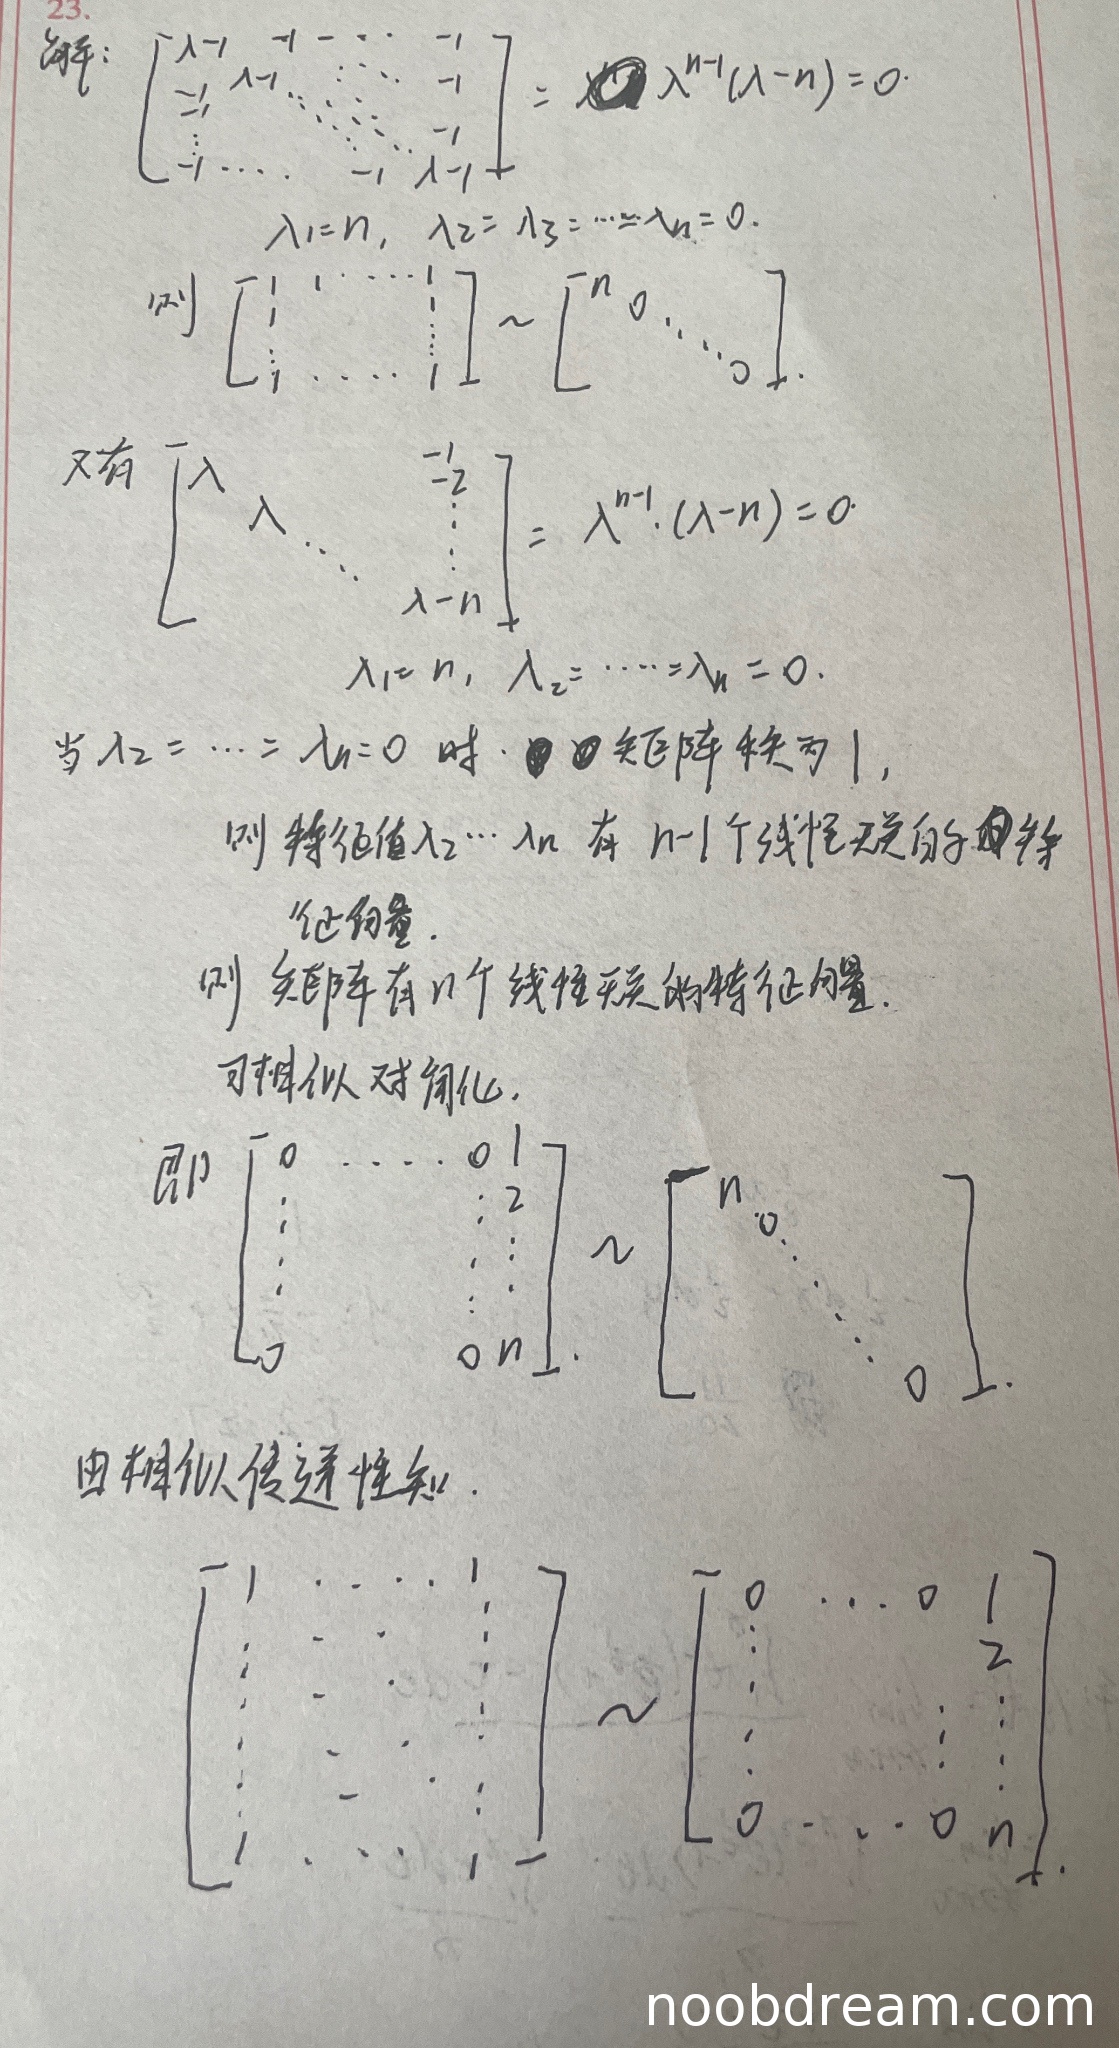 23.
解: [λ-1 -1 - ··· -1
-1 λ-1 ··· -1
-1 ··· -1
-1 ···· -1 λ-1] = λⁿ⁻¹(λ-n)=0.
λ₁=n, λ₂=λ₃=···=λn=0.
则 [1 1 ···· 1
1
1 ···· 1] ~ [n 0 ··· 0].
又有 [λ -1
λ -2
⋮
λ-n] = λⁿ⁻¹·(λ-n)=0.
λ₁=n, λ₂=·····=λn=0.
当λ₂=···=λn=0 时. 矩阵秩为1,
则 特征值λ₂···λn 有 n-1个线性无关的特
征向量.
则 矩阵有n个线性无关的特征向量.
可相似对角化.
即 [0 ···· 0 1
2
⋮
0 0 n]. ~ [n 0 ··· 0].
由相似传递性知.
[1 ···· 1
⋮
1 ···· 1] ~ [0 ··· 0 1
2
⋮
0 ···· 0 n].
noobdream.com